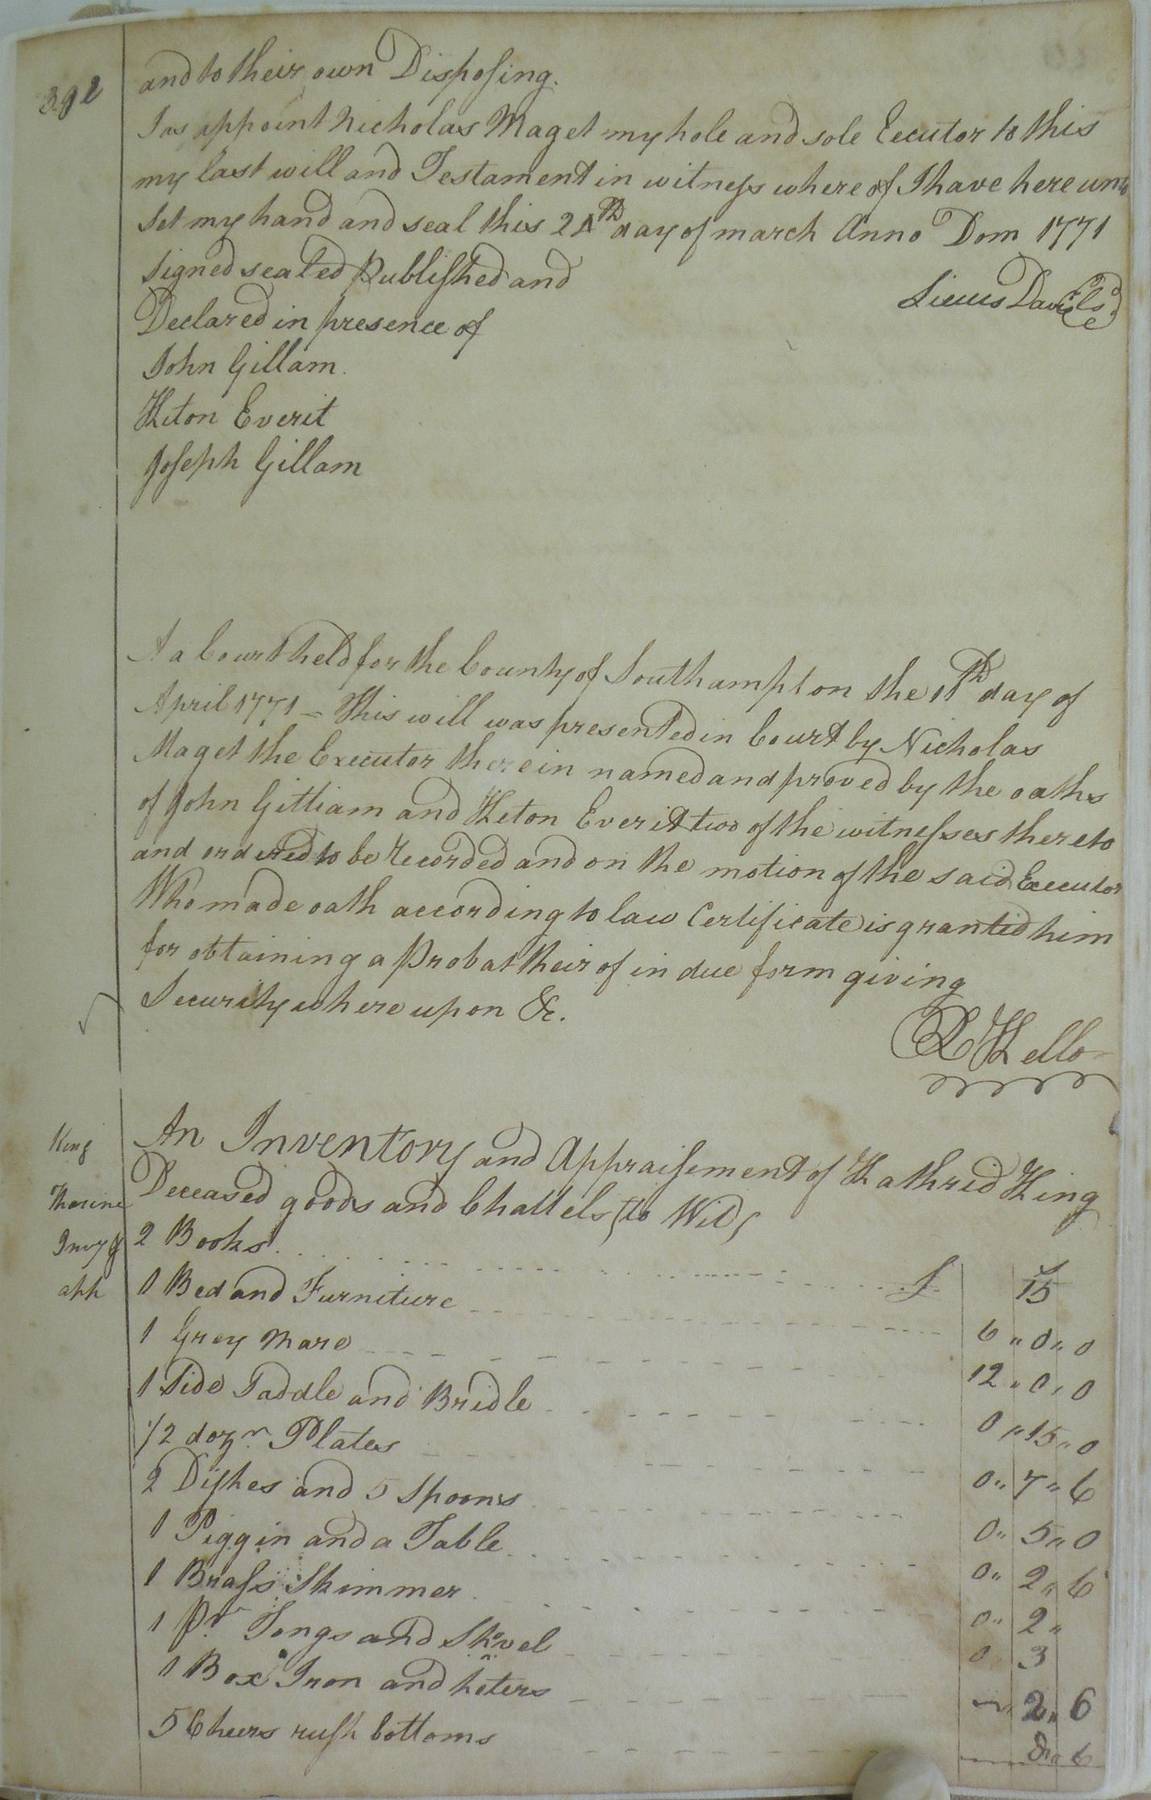 392
and to their own Disposing.
I as appoint Nicholas Maget my hole and sole Eecutor to this
my last will and Testament in witness where of I have here unto
Set my hand and seal this 24th day of march Anno Dom 1771
Signed sealed Published and
Declared in presence of
John Gillam.
Keton Everit
Joseph Gillam
A a Court held for the County of Southampton the 11th day of
April 1771 - This will was presented in Court by Nicholas
Maget the Executor therein named and proved by the oaths
of John Gilliam and Keton Everit two of the witnesses thereto
and ordered to be recorded and on the motion of the said Executor
Who made oath according to law Certificate is granted him
for obtaining a Probat their of in due form giving
Security where upon &c.
R Kello
King
An Inventory and Appraisement of Kathrid King
Deceased goods and Chattels to Wit
Invy &
app
2 Books £ 15
1 Bed and Furniture 6 " 0 " 0
1 Grey Mare 12 " 0 " 0
1 Side Saddle and Bridle 0 " 15 " 0
1/2 dozn Plates 0 " 7 " 6
2 Dishes and 5 Spoons 0 " 5 " 0
1 Piggin and a Table 0 " 2 " 6
1 Brass Skimmer 0 " 2 "
1 Pr Tongs and Shovel 0 3
1 Box Iron and heters 2 " 6
5 Cheers rush bottoms 8 " 6